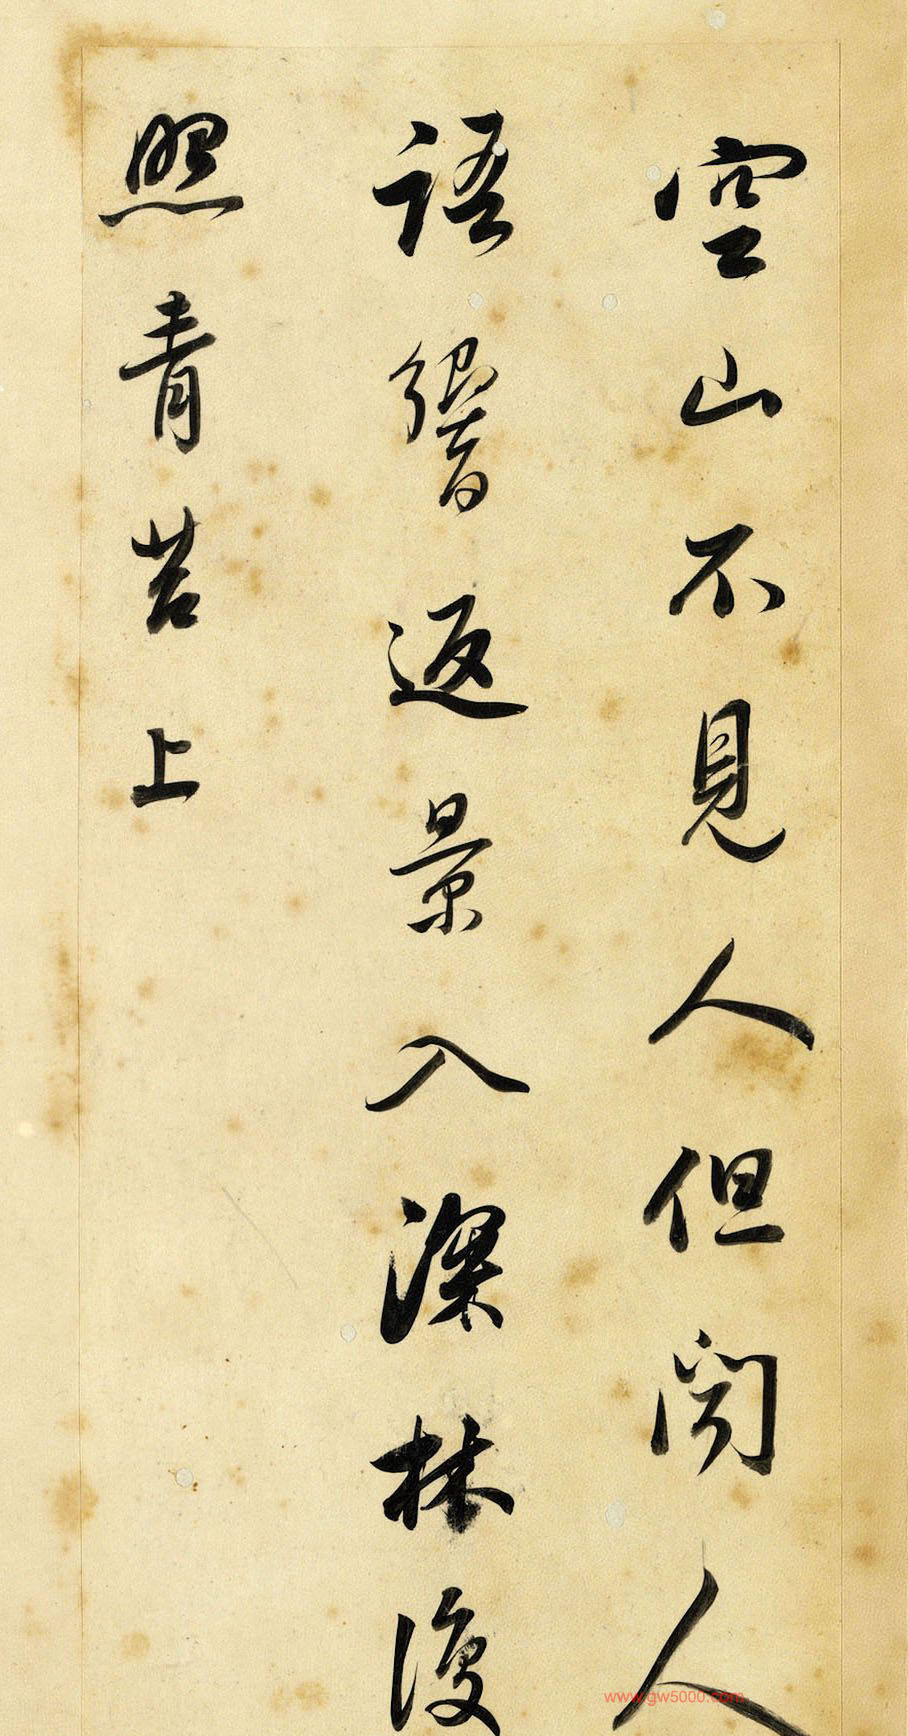 空山不見人但聞人
語響返景入深林復
照青苔上
www.gw5000.com